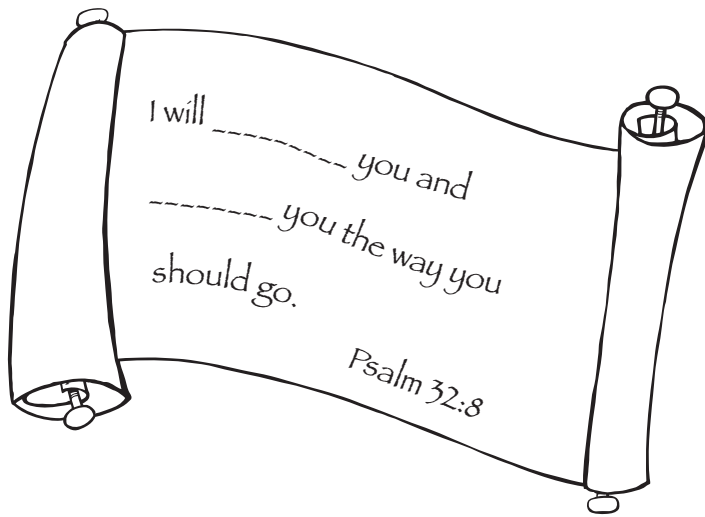 I will _________ you and
________ you the way you
should go.
Psalm 32:8